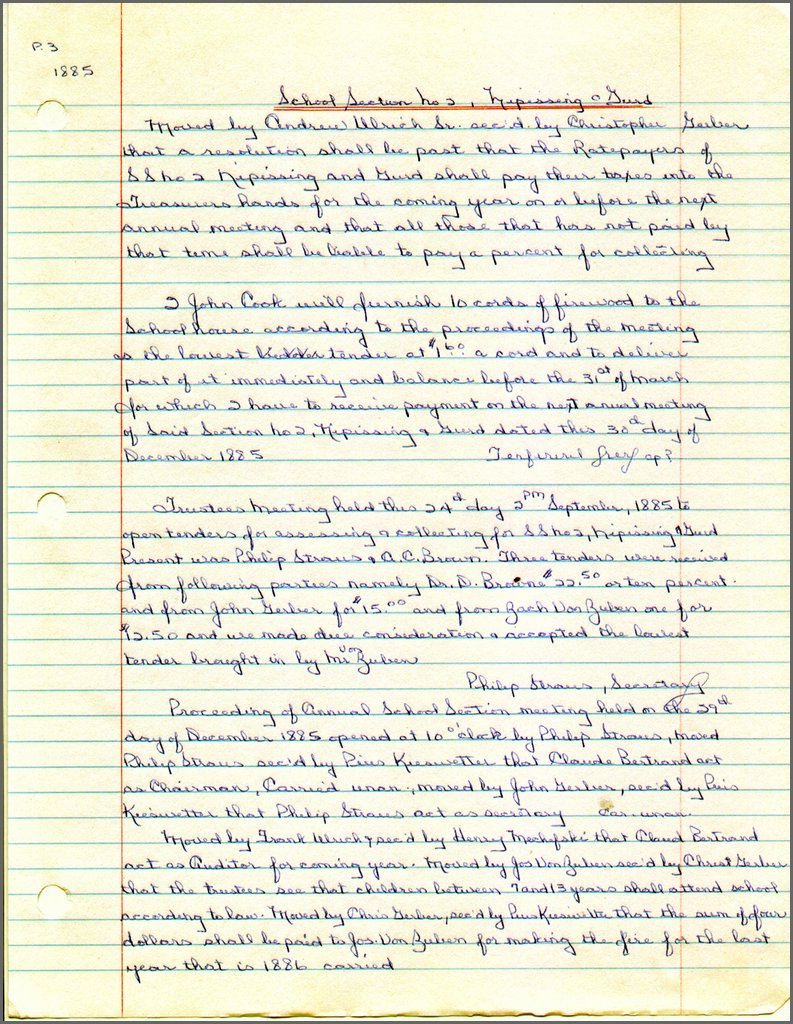 P. 3
1885
School Section No 2, Nipissing & Gurd
Moved by Andrew Ulrich Sr. sec'd. by Christopher Gerber
that a resolution shall be past that the Ratepayers of
SS No 2 Nipissing and Gurd shall pay their taxes into the
Treasurers hands for the coming year on or before the next
annual meeting and that all those that has not paid by
that time shall be liable to pay a percent for collecting
I John Cook will furnish 10 cords of firewood to the
School house according to the proceedings of the meeting
as the lowest tender at $1.60 a cord and to deliver
part of it immediately and balance before the 31st of March
for which I have to receive payment on the next annual meeting
of Said Section No 2, Nipissing & Gurd dated this 30th day of
December 1885
Trustees Meeting held this 24th day 2 PM September, 1885 to
open tenders for assessing & collecting for SS No 2, Nipissing & Gurd
Present was Philip Straus & A.C. Brown. Three tenders were received
from following parties namely Dr. D. Browne $22.50 or ten percent.
and from John Gerber for $15.00 and from Zach Von Zuben one for
$12.50 and we made due consideration & accepted the lowest
tender brought in by Mr Von Zuben
Philip Straus, Secretary
Proceeding of Annual School Section meeting held on the 29th
day of December 1885 opened at 10 o'clock by Philip Straus, moved
Philip Straus sec'd by Pius Kieswetter that Claude Bertrand act
as Chairman, Carried unan., moved by John Gerber, sec'd by Pius
Kieswetter that Philip Straus act as secretary car. unan.
Moved by Frank Ulrich & sec'd by Henry Mechefski that Claud Bertrand
act as Auditor for coming year. Moved by Jos Von Zuben sec'd by Christ Gerber
that the trustees see that children between 7 and 13 years shall attend school
according to law. Moved by Chris Gerber, sec'd by Pius Kieswetter that the sum of four
dollars shall be paid to Jos. Von Zuben for making the fire for the last
year that is 1886 carried